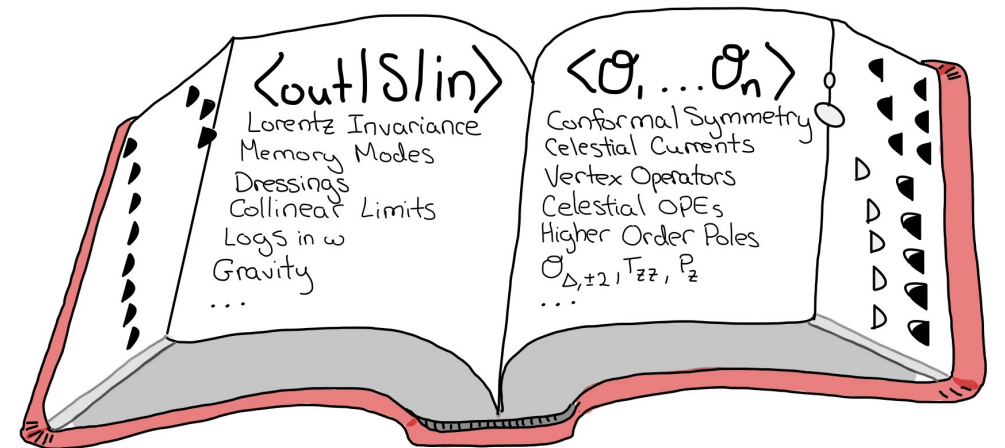 <out|S|in>
Lorentz Invariance
Memory Modes
Dressings
Collinear Limits
Logs in ω
Gravity
...
<𝒪₁...𝒪ₙ>
Conformal Symmetry
Celestial Currents
Vertex Operators
Celestial OPEs
Higher Order Poles
𝒪_Δ,±2, T_zz, P_z
...